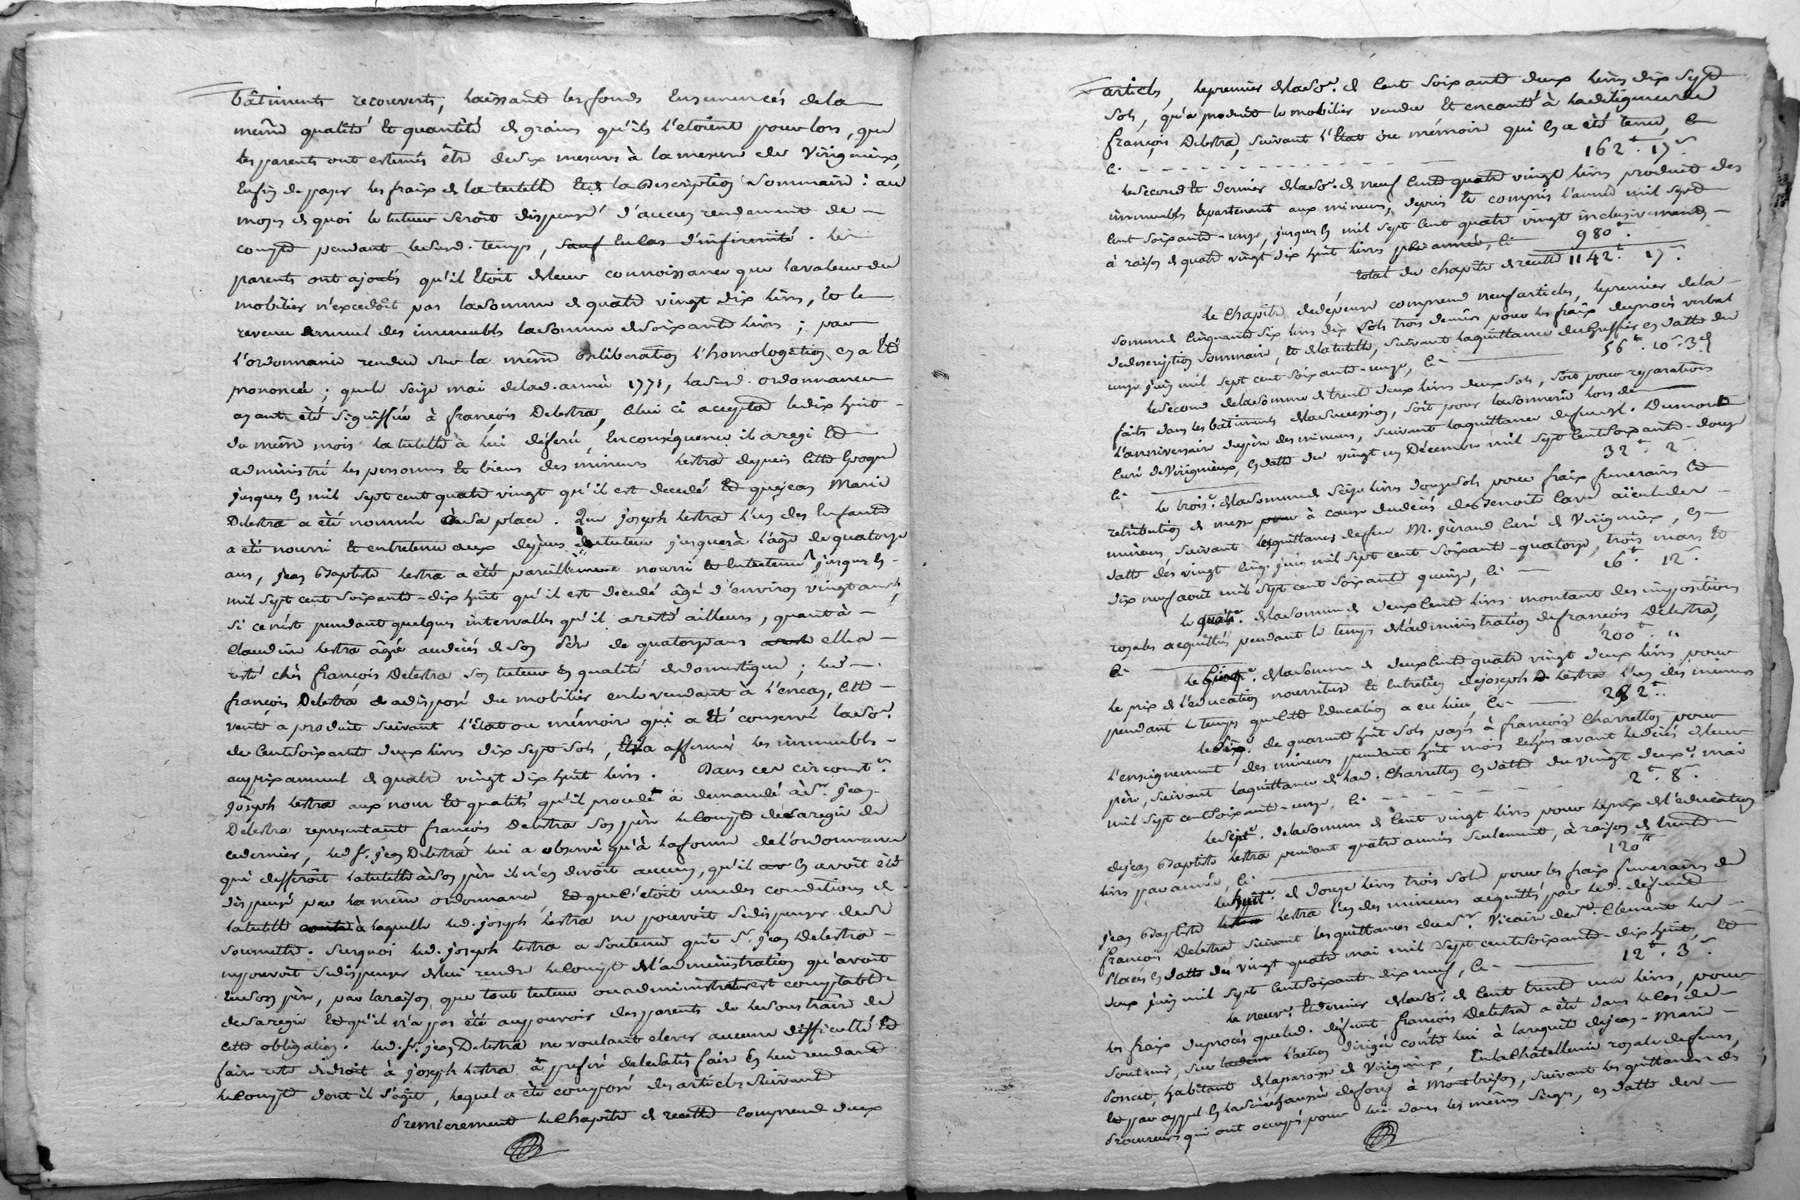 bâtiments recouverts, laissant les fonds Ensemencés de la
même qualité Et quantité de grains qu'ils l'etoient pour lors, que
les parents ont estimés être de six mesures à la mesure de Virignieux,
Enfin de payer les fraix de la tutelle Et de la Description Sommaire : au
moyen de quoi le tuteur seroit dispensé d'aucun rendement de
compte pendant led. temps, sauf En cas d'infirmité. les
parents ont ajoutés qu'il Etoit de leur connoissance que la valeur du
mobilier n'excedoit pas la somme de quatre vingt dix livres, Et le
revenu annuel des immeubles la somme de soixante livres ; par
l'ordonnance rendue sur la même deliberation l'homologation En a Eté
prononcée ; que le seize mai de lad. année 1771, la susd. ordonnance
ayant été signiffiée à françois Delestra, Celui ci accepta le dix huit
du même mois la tutelle à lui déferée, En conséquence il a regi Et
administré les personnes Et biens des mineurs lestra depuis Cette Epoque
jusques En mil sept cent quatre vingt qu'il est decedé Et que jean Marie
Delestra a été nommé à sa place. Que joseph lestra l'un des Enfants
a été nourri Et entretenu aux depens du tuteur jusques à l'âge de quatorze
ans, jean Baptiste lestra a été pareillement nourri Et Entretenu jusques En
mil sept cent soixante-dix huit qu'il est decedé âgé d'environ vingt ans,
Si ce n'est pendant quelques intervalles qu'il a resté ailleurs, quant à
Claudine lestra âgée au decès de son Père de quatorze ans elle a
resté chés françois Delestra son tuteur En qualité de domestique ; led.
françois Delestra a disposé du mobilier en le vendant à l'encan, Cette
vente a produit suivant l'Etat ou mémoire qui a Eté conservé la so.e
de Cent soixante deux livres dix sept sols, Et il a affermé les immeubles
au prix annuel de quatre vingt dix huit livres. Dans ces circonst.es
joseph lestra aux nom Et qualités qu'il procede a demandé à s.r jean
Delestra representant françois Delestra son père le Compte de la regie de
ce dernier, led. s.r jean Delestra lui a observé qu'à la forme de l'ordonnance
qui defferoit la tutelle à son père il n'en devoit aucun, qu'il En avoit été
dispensé par la même ordonnance Et que C'étoit une des conditions de
la tutelle à laquelle led. joseph lestra ne pouvoit se dispenser de se
soumettre. Surquoi led. joseph lestra a soutenu que s.r jean Delestra
ne pouvoit se dispenser de lui rendre le Compte de l'administration qu'avoit
Eu son père, par la raison, que tout tuteur ou administrateur est comptable
de sa regie Et qu'il n'a pas été au pouvoir des parents de le soustraire de
Cette obligation. led. s.r jean Delestra ne voulant elever aucune difficulté Et
faire reste de droit à joseph lestra à preferé de le satisfaire En lui rendant
le Compte dont il s'agit, lequel a été composé des articles suivant
Premierement le Chapitre de recette comprend deux
articles, le premier de la so.e de Cent soixante deux livres dix sept
sols, qu'a produit le mobilier vendu Et encanté à la diligence de
françois Delestra, suivant l'Etat ou mémoire qui En a été tenu, Ci
Ci 162lt. 17s
le second Et dernier de la so.e de neuf Cent quatre vingt livres produit des
immeubles appartenant aux mineurs, depuis Et compris l'année mil sept
Cent soixante-onze, jusques En mil sept cent quatre vingt inclusivement
à raison de quatre vingt dix huit livres par année, Ci 980lt.
total du chapitre de recette 1142lt. 17s
le Chapitre de depense comprend neuf articles, le premier de la
somme de Cinquante six livres dix sols trois deniers pour les fraix du procès verbal
de description sommaire, Et de la tutelle, suivant la quittance du Greffier En datte du
onze juin mil sept cent soixante-onze, Ci 56lt. 10s. 3d
le second de la somme de trente deux livres deux sols, soit pour reparations
faites dans les bâtiments de la succession, soit pour la sonnerie lors de
l'anniversaire du père des mineurs, suivant la quittance de feu m.r Dumont
Curé de Virignieux, En datte du vingt un Décembre mil sept Cent soixante-douze
Ci 32lt. 2s
le trois.e de la somme de seize livres douze sols pour fraix funeraires Et
retribution de messe à cause du decès de Benoite aïeule des
mineurs suivant les quittances de feu M. Gérand Curé de Virignieux, En
datte des vingt cinq juin mil sept cent soixante-quatorze, trois mars Et
dix neuf août mil sept cent soixante quinze, Ci 16lt. 12s
le quatr.e de la somme de deux Cent livres montant des impositions
royales acquittées pendant le temps de l'administration de françois Delestra,
Ci 200lt. "
le Cinq.e de la somme de deux Cent quatre vingt deux livres pour
le prix de l'education nourriture Et Entretien de joseph lestra l'un des mineurs
pendant le temps que Cette Education a eu lieu, Ci 282lt.
le Six.e de quarante huit sols payés à françois Charretton pour
l'enseignement des mineurs pendant huit mois Echus avant le decès de leur
père, suivant la quittance de lad. Charretton En datte du vingt deux.e mai
mil sept cent soixante-onze, Ci 2lt. 8s.
le Sept.e de la somme de Cent vingt livres pour le prix de l'education
de jean Baptiste lestra pendant quatre années seulement, à raison de trente
livres par année, Ci 120lt
le huit.e de douze livres trois sols pour les fraix funeraires de
jean Baptiste lestra l'un des mineurs acquittés par led. defunt
françois Delestra suivant les quittances du s.r Vicaire de S.t Clement les
Places En datte des vingt quatre mai mil sept cent soixante-dix huit, Et
deux juin mil sept Cent soixante-dix neuf, Ci 12lt. 3s.
le neuv.e Et dernier de la so.e de Cent trente une livres, pour
les fraix du procès que led. defunt françois Delestra a été dans le Cas de
soutenir, sur l'action dirigée contre lui à la requête de jean-Marie
Poncet, habitant de la paroisse de Virignieux, En la Châtellenie royale de feurs,
Et par appel En la Sénéchaussée de forez à Montbrison, suivant les quittances des
Procureurs qui ont occupés pour lui dans les mêmes sieges, en datte des